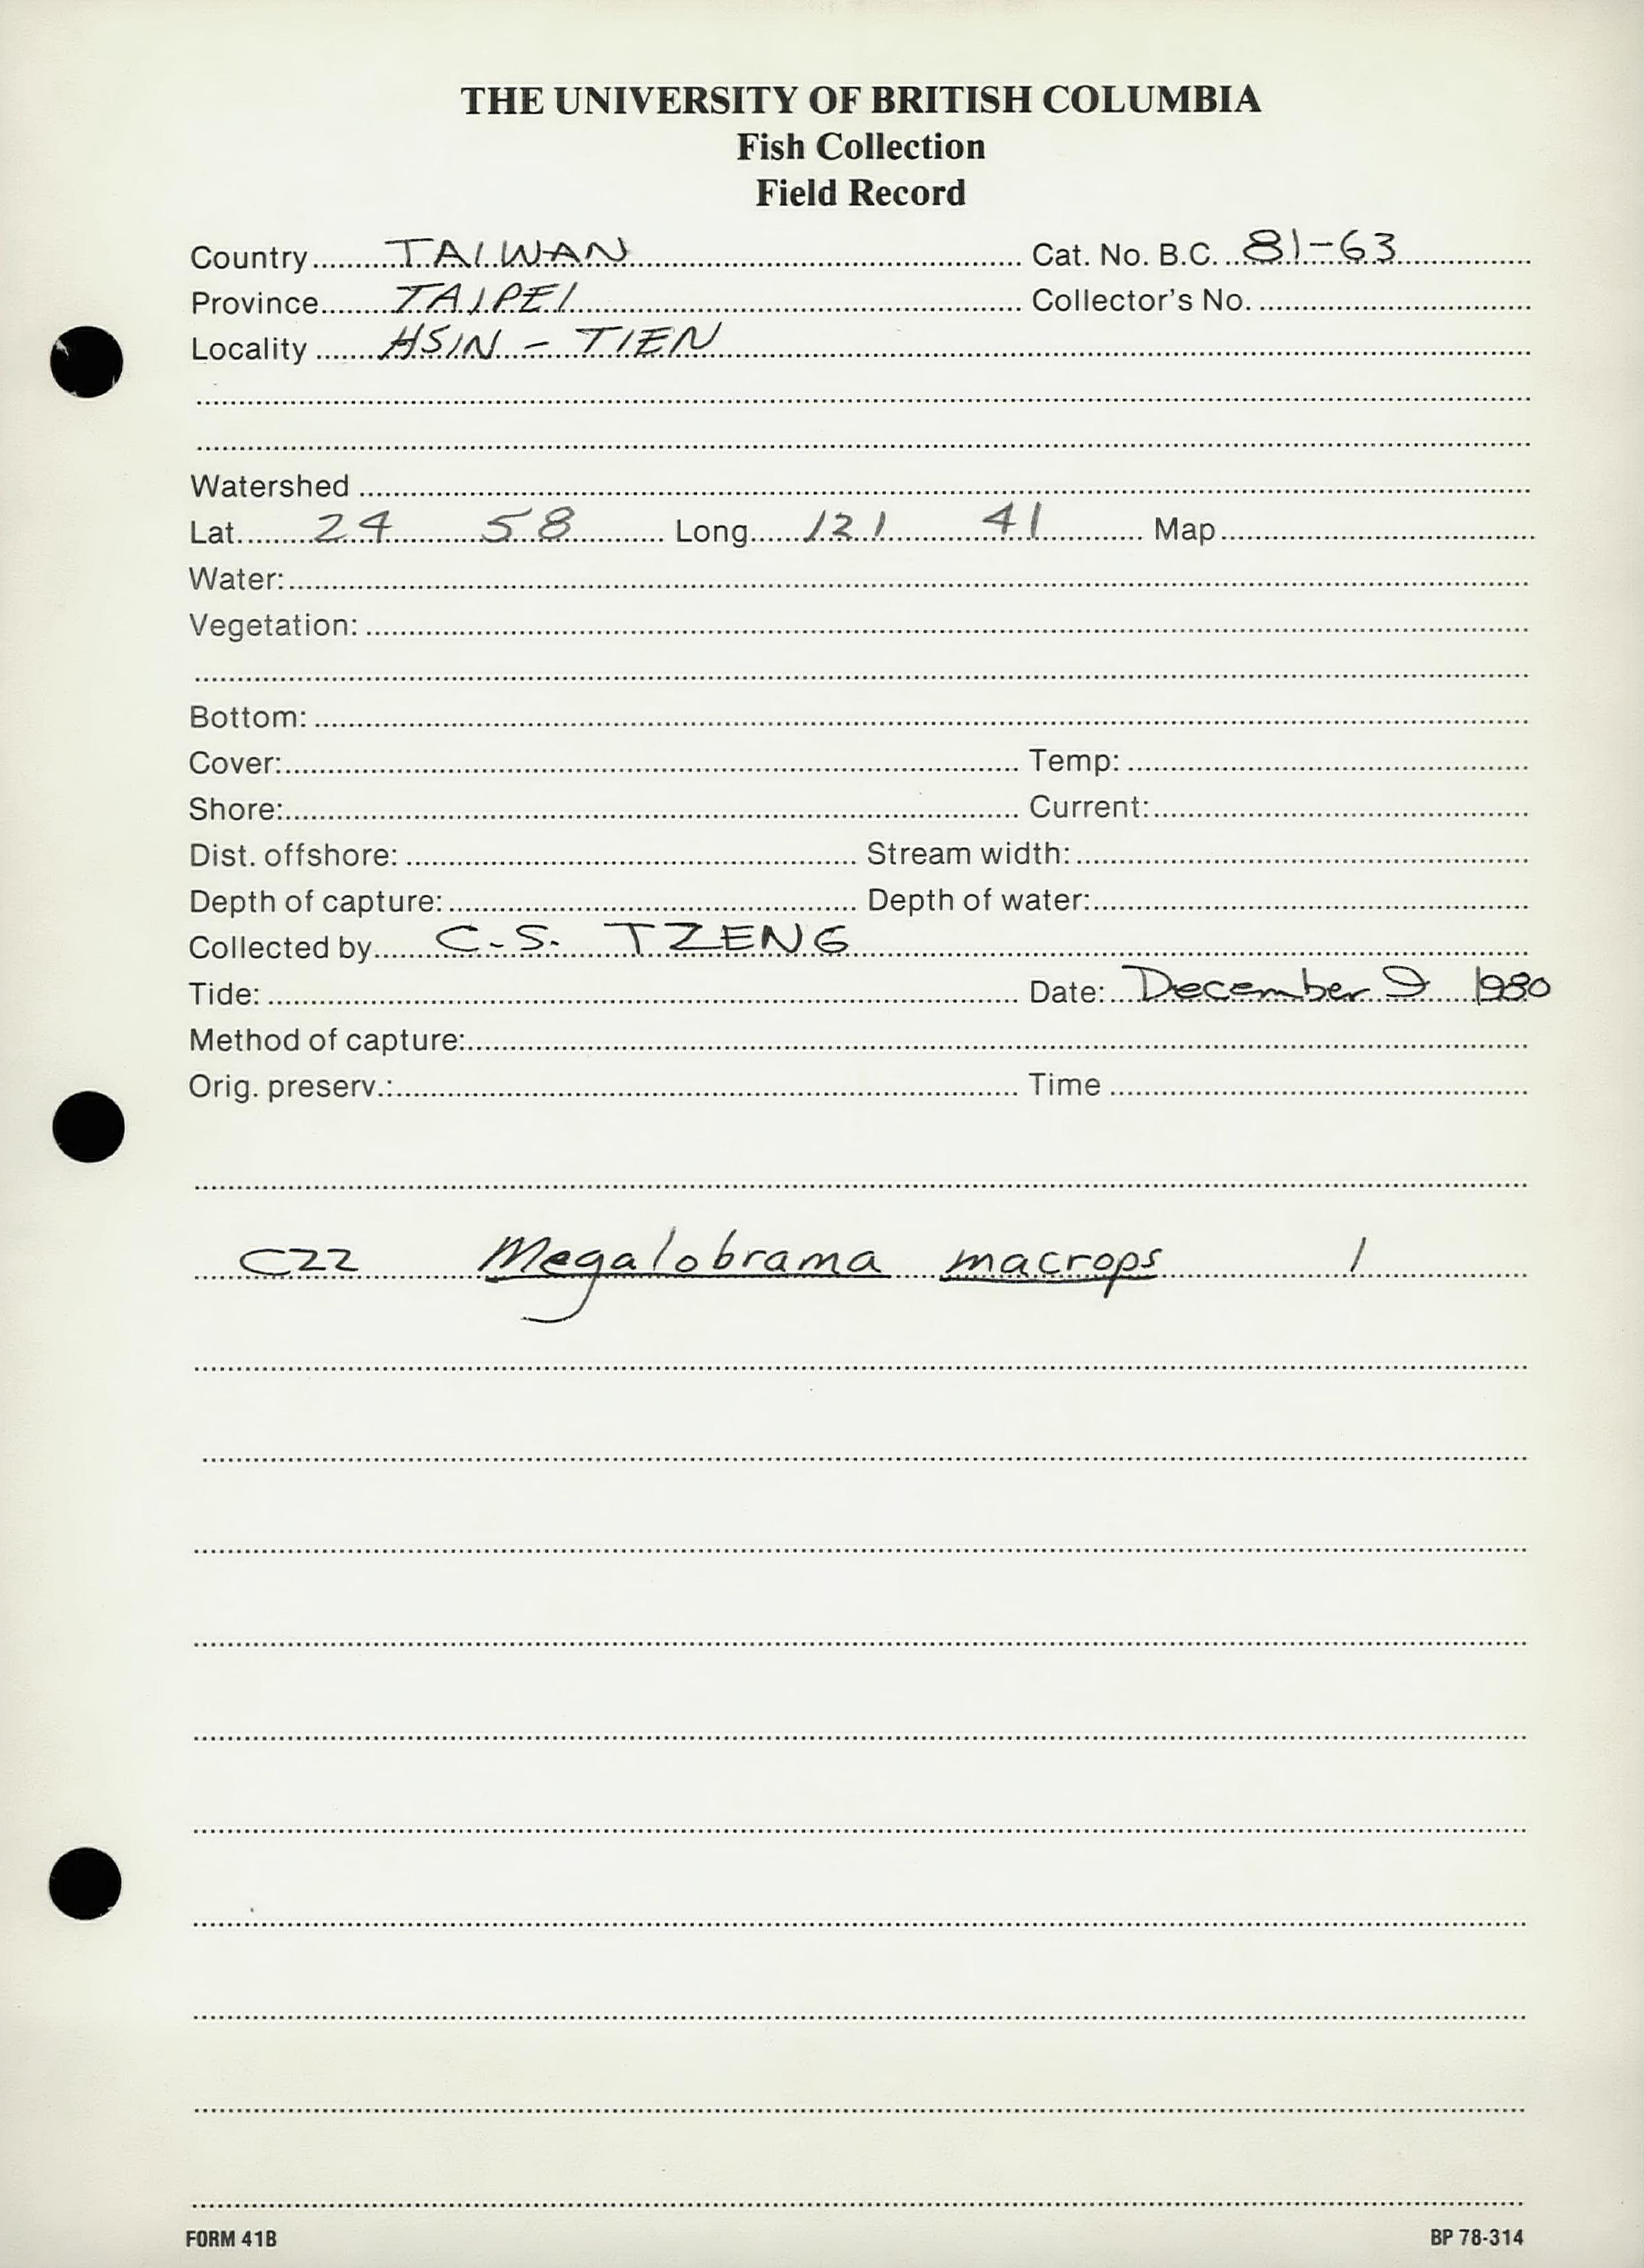 THE UNIVERSITY OF BRITISH COLUMBIA
Fish Collection
Field Record
Country TAIWAN Cat. No. B.C. 81-63
Province TAIPEI Collector's No.
Locality HSIN - TIEN
Watershed
Lat. 24 58 Long. 121 41 Map
Water:
Vegetation:
Bottom:
Cover: Temp:
Shore: Current:
Dist. offshore: Stream width:
Depth of capture: Depth of water:
Collected by C.S. TZENG
Tide: Date: December 9 1980
Method of capture:
Orig. preserv.: Time
C22 Megalobrama macrops 1
FORM 41B BP 78-314